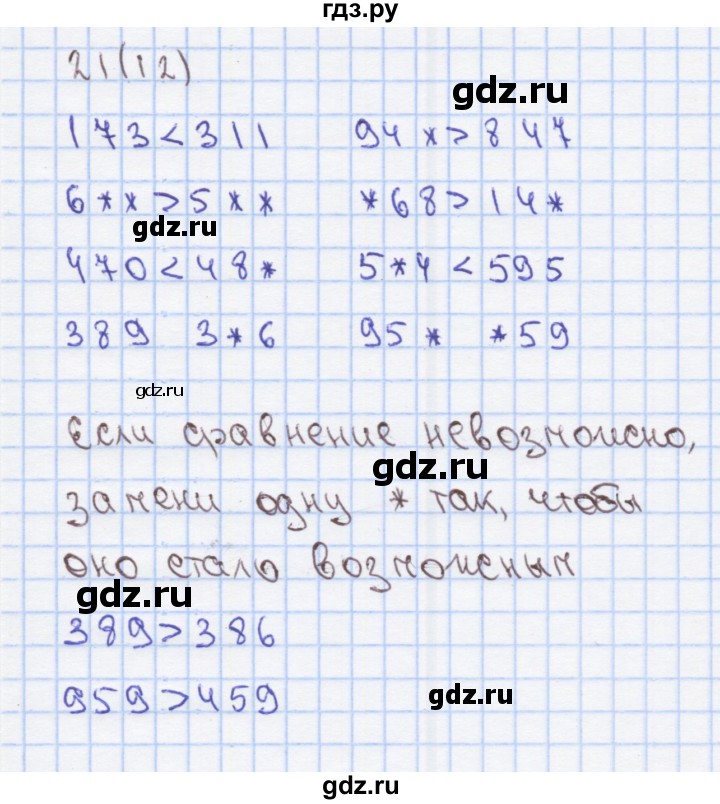 гдз.ру
21(12)
gdz.ru
173<311 94*>847
6**>5** *68>14*
gdz.ru
470<48* 5*4<595
389 3*6 95* *59
gdz.ru
Если сравнение невозможно,
gdz.ru
замени одну * так, чтобы
оно стало возможным
gdz.ru
389>386
959>459
gdz.ru
gdz.ru